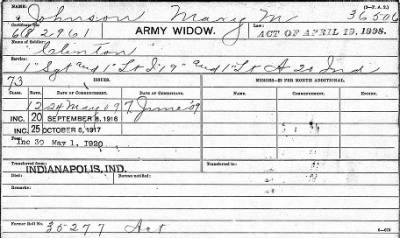 (3-FA2.)
NAME
Johnson Mary M 36506
Certificate No. ARMY WIDOW. Law:
682961 ACT OF APRIL 19, 1908.
Name of Soldier:
Clinton
Service:
1" Sgt and 1" Lt I 19" and 1" Lt A 20 Ind
73 ISSUES. MINORS—$2 PER MONTH ADDITIONAL.
CLASS. RATE. DATE OF COMMENCEMENT. DATE OF CERTIFICATE.
12 24 May 09 7 June 09
INC. 20 SEPTEMBER 8, 1916
INC. 25 OCTOBER 6, 1917
Inc 30 May 1, 1920
Transferred from: Transferred to:
INDIANAPOLIS, IND.
Died: Bureau notified:
Remarks:
Former Roll No. 35277 Act